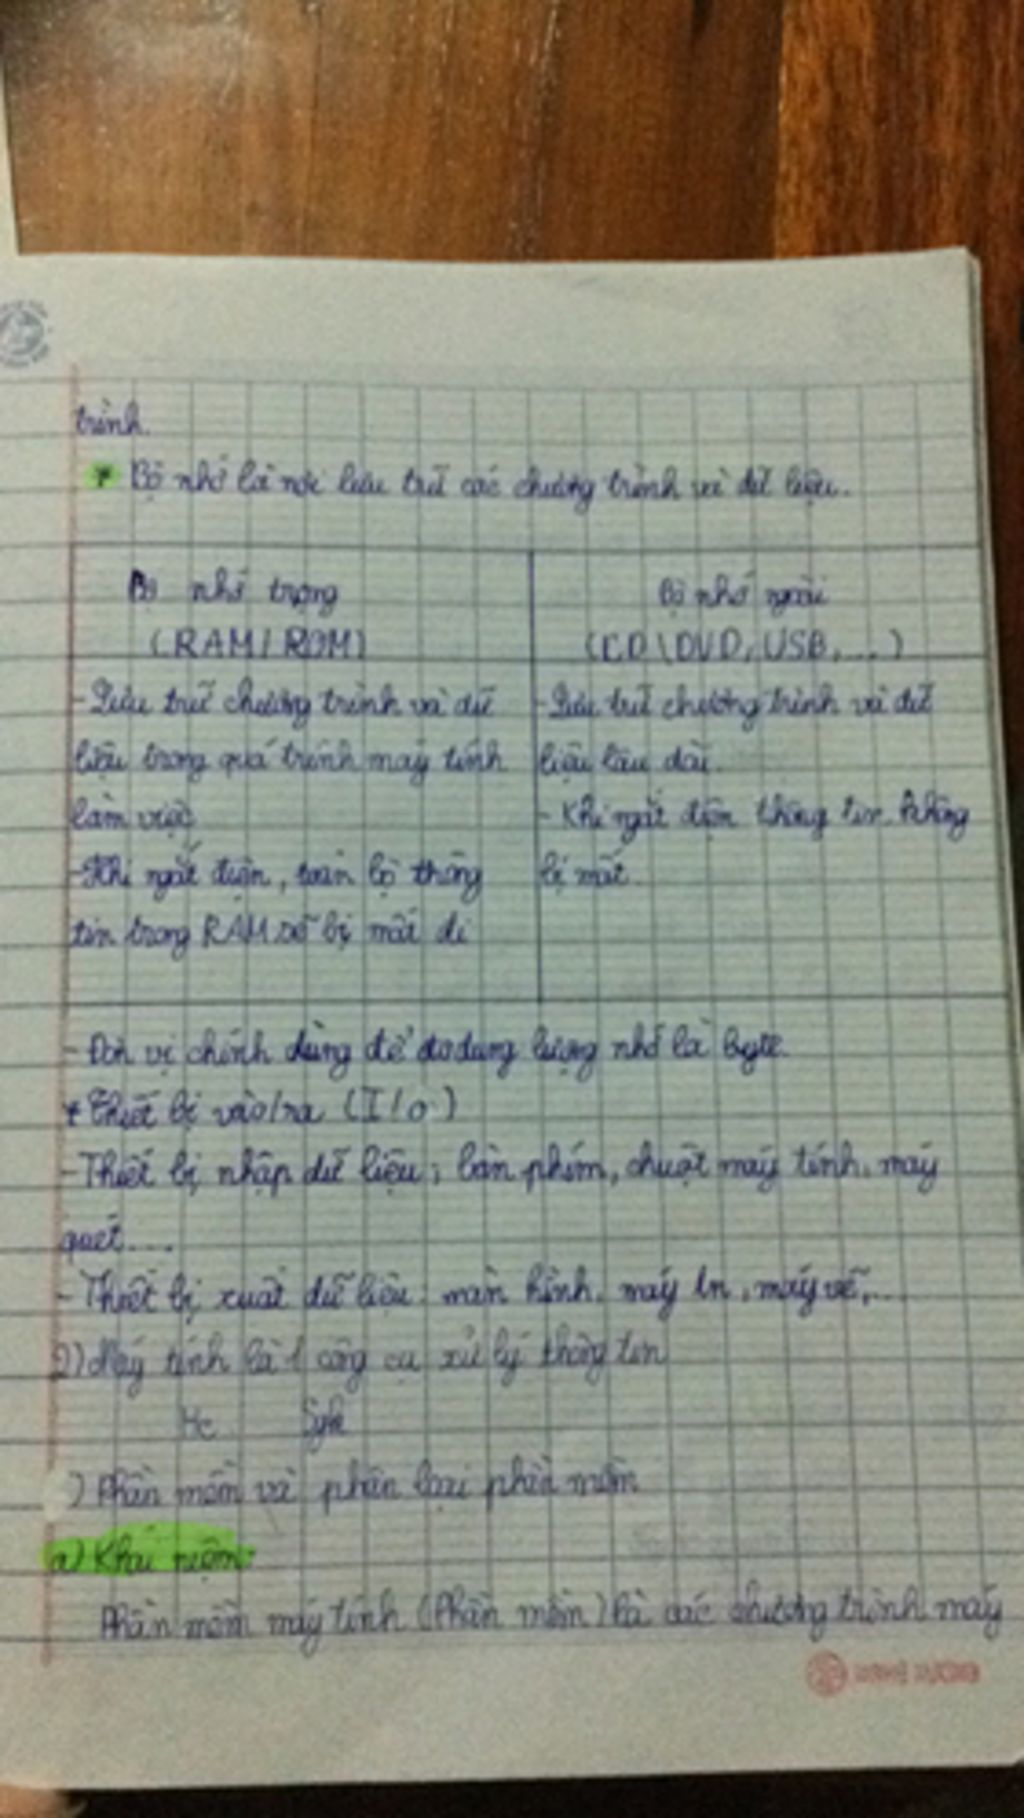 trình.
* Bộ nhớ là nơi lưu trữ các chương trình và dữ liệu.
Bộ nhớ trọng
(RAM/ROM)
- Lưu trữ chương trình và dữ
liệu trong quá trình máy tính
làm việc
- Khi ngắt điện, toàn bộ thông
tin trong RAM sẽ bị mất đi
Bộ nhớ ngoài
(CD\DVD, USB, ...)
- Lưu trữ chương trình và dữ
liệu lâu dài.
- Khi ngắt điện thông tin không
bị mất
- Đơn vị chính dùng để đo dung lượng nhớ là byte.
* Thiết bị vào/ra (I/O)
- Thiết bị nhập dữ liệu; bàn phím, chuột máy tính, máy
quét....
- Thiết bị xuất dữ liệu: màn hình, máy in, máy vẽ,...
2) Máy tính là 1 công cụ xử lý thông tin
) Phần mềm và phân loại phần mềm
a) Khái niệm:
Phần mềm máy tính (Phần mềm) là các chương trình máy